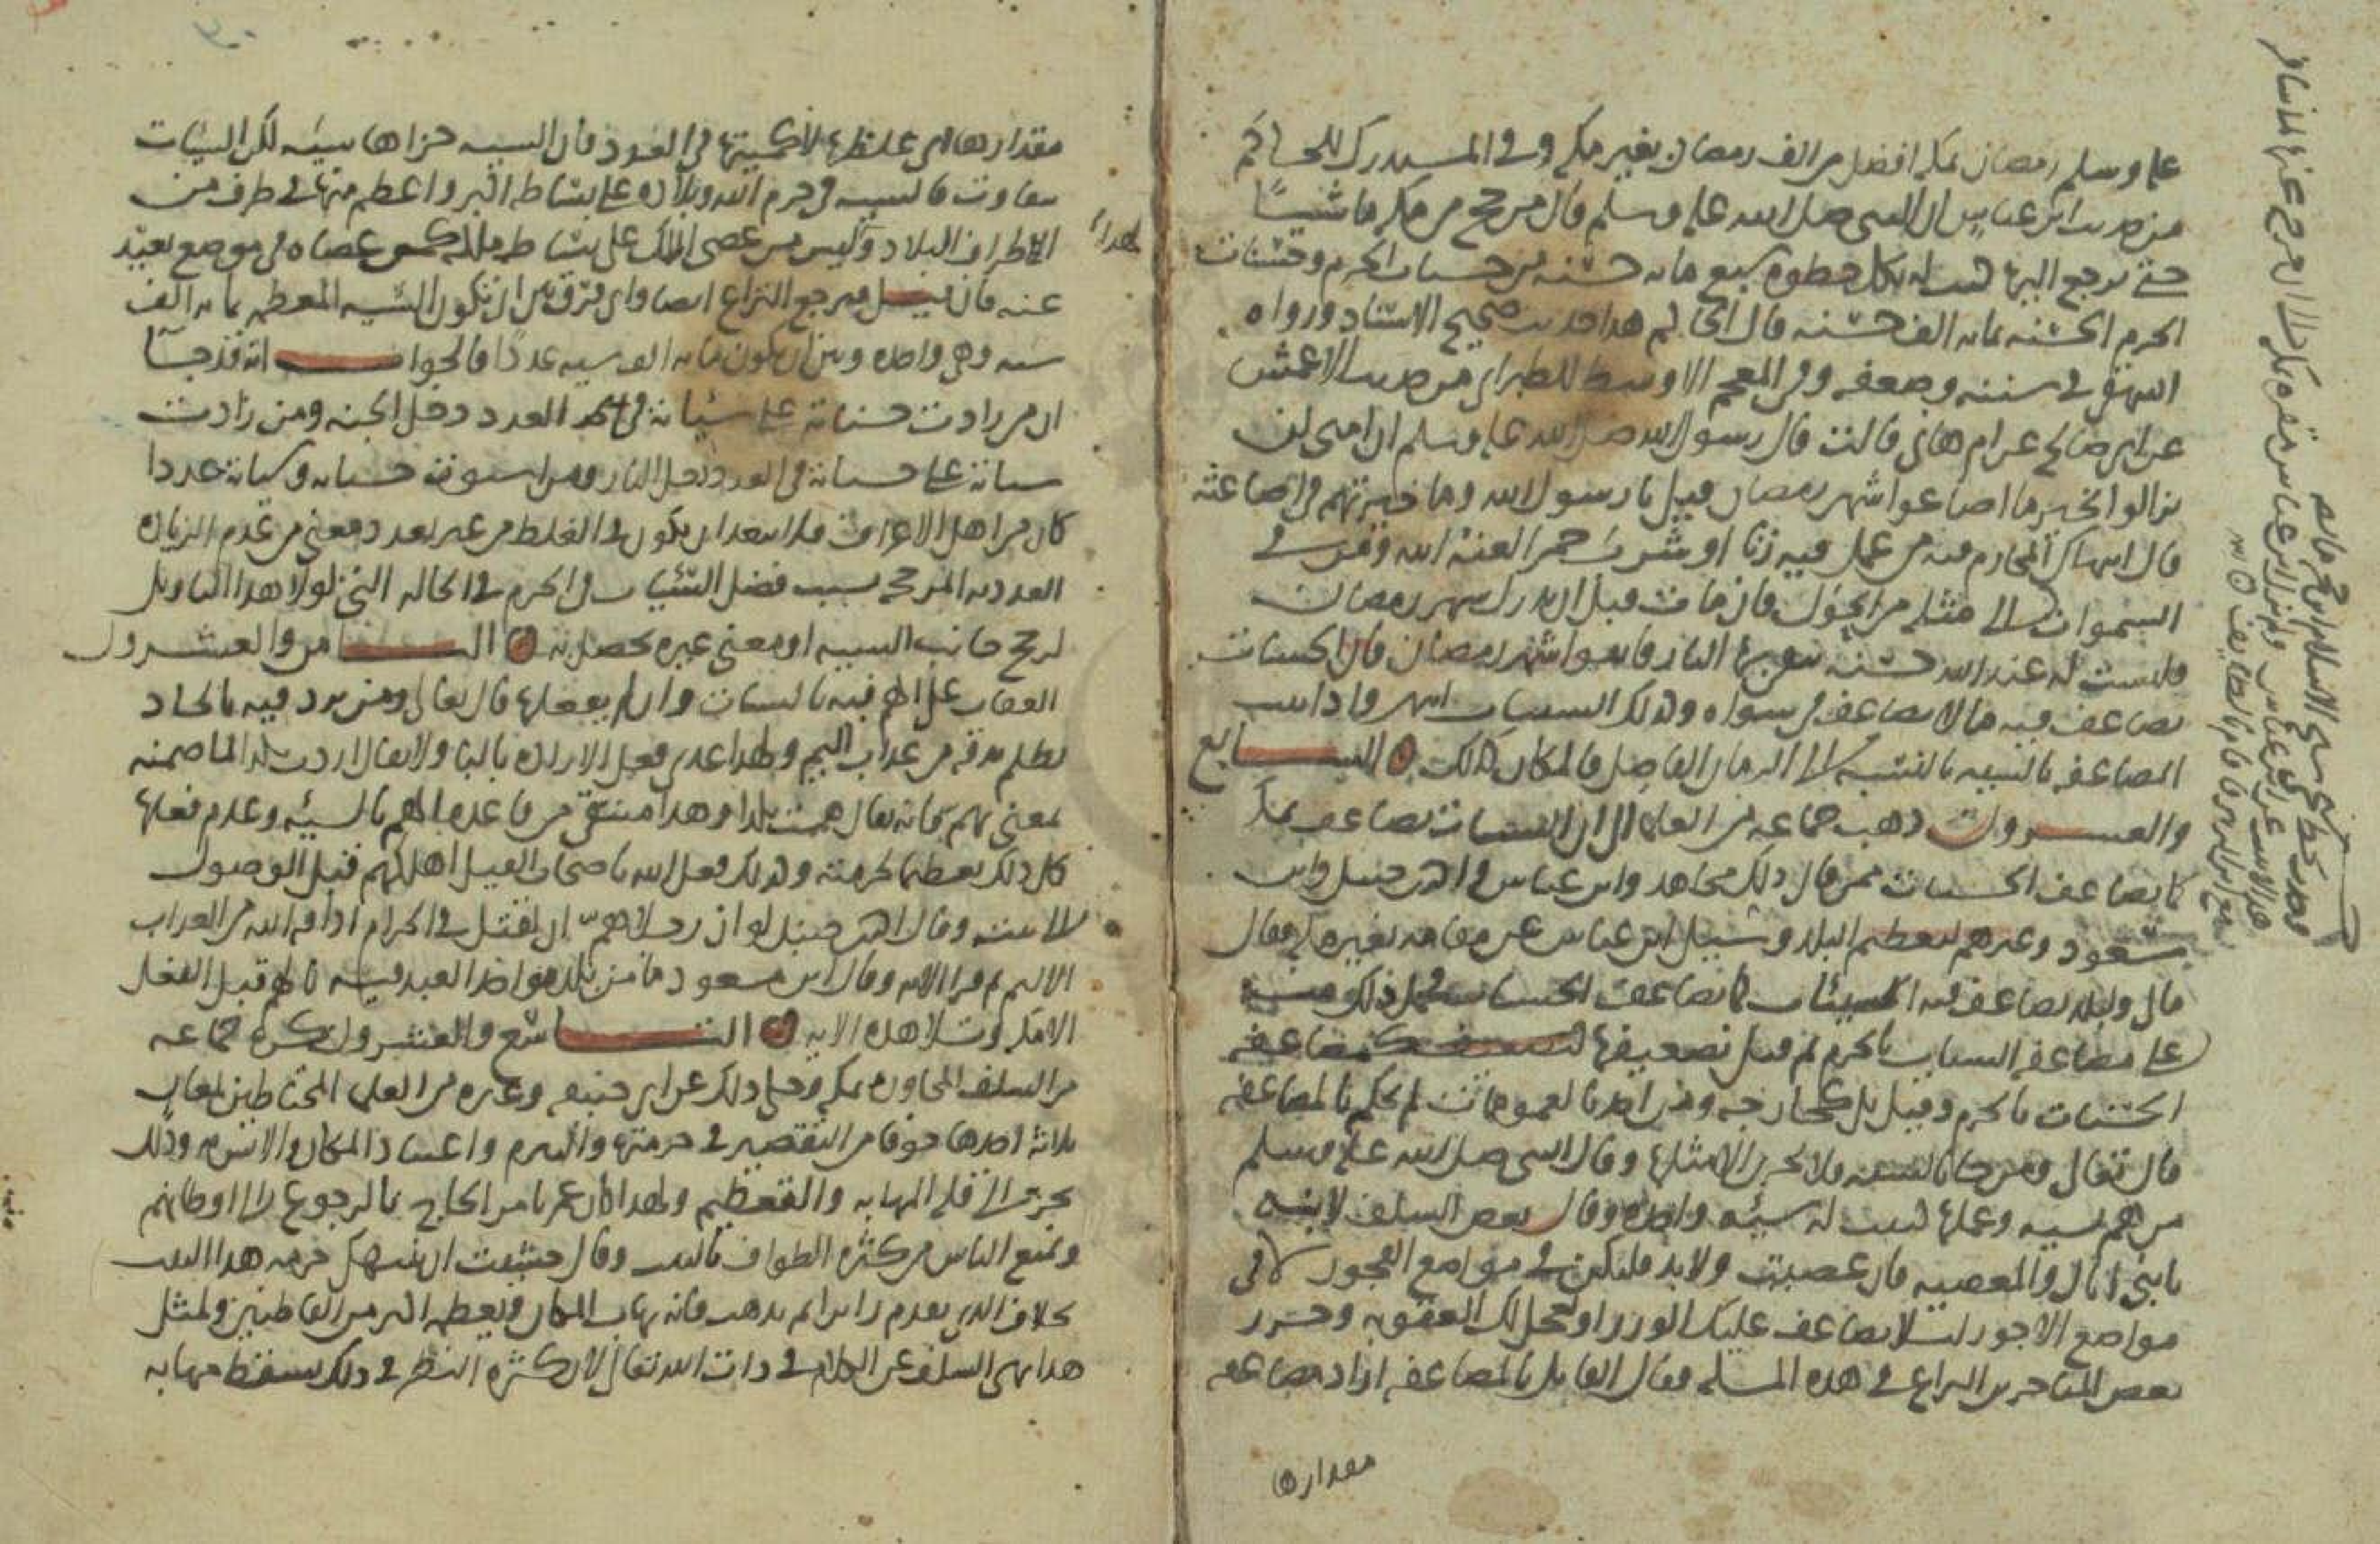 عليه وسلم رمضان بمكة افضل من الف رمضان بغير مكة وفي المستدرك للحاكم
من حديث ابن عباس ان النبي صلى الله عليه وسلم قال من حج من مكة ماشيًا
حتى يرجع اليها كتب له بكل خطوة سبع مائة حسنة من حسنات الحرم وحسنات
الحرم الحسنة بمائة الف حسنة قال الحاكم هذا حديث صحيح الاسناد ورواه
البيهقي في سننه وضعفه وفي المعجم الاوسط للطبراني من حديث الاعمش
عن ابي صالح عن ام هاني قالت قال رسول الله صلى الله عليه وسلم ان امتي لن
يزالوا بخير ما اضاعوا شهر رمضان قيل يا رسول الله وما خزيهم في اضاعته
قال انتهاك المحارم فيه من عمل فيه زنا او شرب خمر العنه الله ومن في
السموات الى مثله من الحول فان مات قبل ان يدرك شهر رمضان
فليست له عند الله حسنة يتقي بها النار فاتقوا شهر رمضان فان الحسنات
تضاعف فيه ما لا تضاعف في سواه وكذلك السيات انتهى واذا ثبت
المضاعفة بالسيئة بالنسبة الى الزمان الفاضل فالمكان كذلك ۞ السابع
والعشرون ذهب جماعة من العلما الى ان السيئات تضاعف بمكة
كما تضاعف الحسنات ممن قال ذلك مجاهد وابن عباس واحمد بن حنبل وابن
مسعود وغيرهم لتعظيم البلد وسئل ابن عباس عن مقامه بغير مكة فقال
مالي ولبلد تضاعف فيه السيئات كما تضاعف الحسنات فحمل ذلك منه
على مضاعفة السيات بالحرم ثم قيل تضعيفها كمضاعفة
الحسنات بالحرم وقيل بل كخارجه ومن اخذ بالعمومات لم يحكم بالمضاعفة
قال تعالى ومن جا بالسيئة فلا يجزى الا مثلها وقال النبي صلى الله عليه وسلم
من هم بسيئة وعملها كتبت له سيئة واحدة وقال بعض السلف لابنه
يا بني اياك والمعصية فان عصيت ولا بد فلتكن في مواضع الفجور لا في
مواضع الاجور لئلا يضاعف عليك الوزر او تعجل لك العقوبة وحرر
بعض المتاخرين النزاع في هذه المسلة فقال القايل بالمضاعفة اراد مضاعفة
مقدارها
مقدارها اي غلظها لا كميتها في العدد فان السيئة جزاها سيئة لكن السيئات
تتفاوت فالسيئة في حرم الله وبلاده على بساطه اكبر واعظم منها في طرف من
اطراف البلاد وليس من عصى الملك على بساط ملكه كمن عصاه في موضع بعيد
لهذا
عنه فان قيل فيرجع النزاع ايضا واي فرق بين ان تكون السيئة المعظمة بمائة الف
سيئة وهي واحدة وبين ان يكون مائة الف سيئة عددًا فالجواب انه قد جا
ان من زادت حسناته على سيئاته في العدد دخل الجنة ومن زادت
سياته على حسناته في العدد دخل النار ومن استوت حسناته وسياته عددا
كان من اهل الاعراف فلا يبعد ان يكون في الغلط من غير تعدد معنى من عدم الزيادة
العددية المرجحة بسبب فضل السيئات في الحرم في الحالة التي لولا هذا التاويل
لرجح جانب السيئة او معنى غيره يحصل به ۞ الثامن والعشرون
العقاب على الهم فيه بالسيئات وان لم يفعلها قال تعالى ومن يرد فيه بالحاد
بظلم نذقه من عذاب اليم ولهذا عدي فعل الارادة بالبا ولا يقال اردت بكذا لما ضمنه
معنى يهم كانه يقال هممت بكذا وهذا مستثنى من قاعدة الهم بالسيئة وعدم فعلها
كل ذلك تعظيما لحرمته وكذلك فعل الله باصحاب الفيل اهلكهم قبل الوصول
الى بيته وقال احمد بن حنبل لو ان رجلا هم ان يقتل في الحرم اذاقه الله من العذاب
الاليم ثم قرا الاية وقال ابن مسعود ما من بلد يواخذ العبد فيه بالهم قبل الفعل
الا مكة وتلا هذه الاية ۞ التاسع والعشرون كره جماعة
من السلف المجاورة بمكة وحكي ذلك عن ابي حنيفة وغيره من العلما المحتاطين لمعان
ثلاثة احدها خوفا من التقصير في حرمتها والتبرم واعتياد المكان والانس به وذلك
يجر الى قلة المهابة والتعظيم ولهذا كان عمر يامر الحاج بالرجوع الى اوطانهم
ويمنع الناس من كثرة الطواف بالبيت وقال خشيت ان يتهتك حرمة هذا البيت
بخلاف الذي يقدم زايرا ثم يذهب فانه يهاب المكان ويعظمه اكثر من القاطنين ولمثل
هذا نهى السلف عن الكلام في ذات الله تعالى لان كثرة النظر في ذلك يسقط مهابة